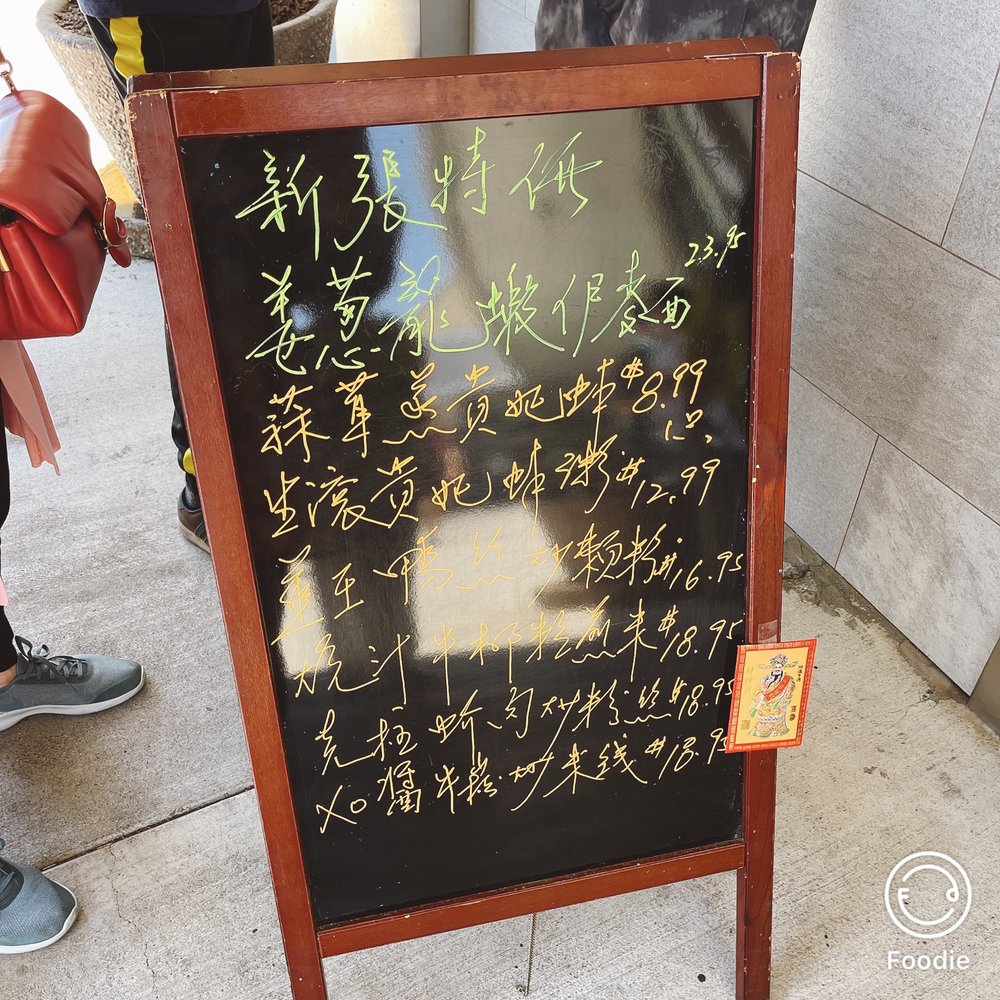 新張特價
姜葱龍蝦伊麵 23.95
蒜茸蒸貴妃蚌 $8.99
1只
生滚貴妃蚌粥 $12.99
韮王鴨絲炒賴粉 $16.95
燒汁牛柳粒煎米 $18.95
蚧肉炒粉絲 $18.95
XO醬牛崧炒米线 $18.95
Foodie